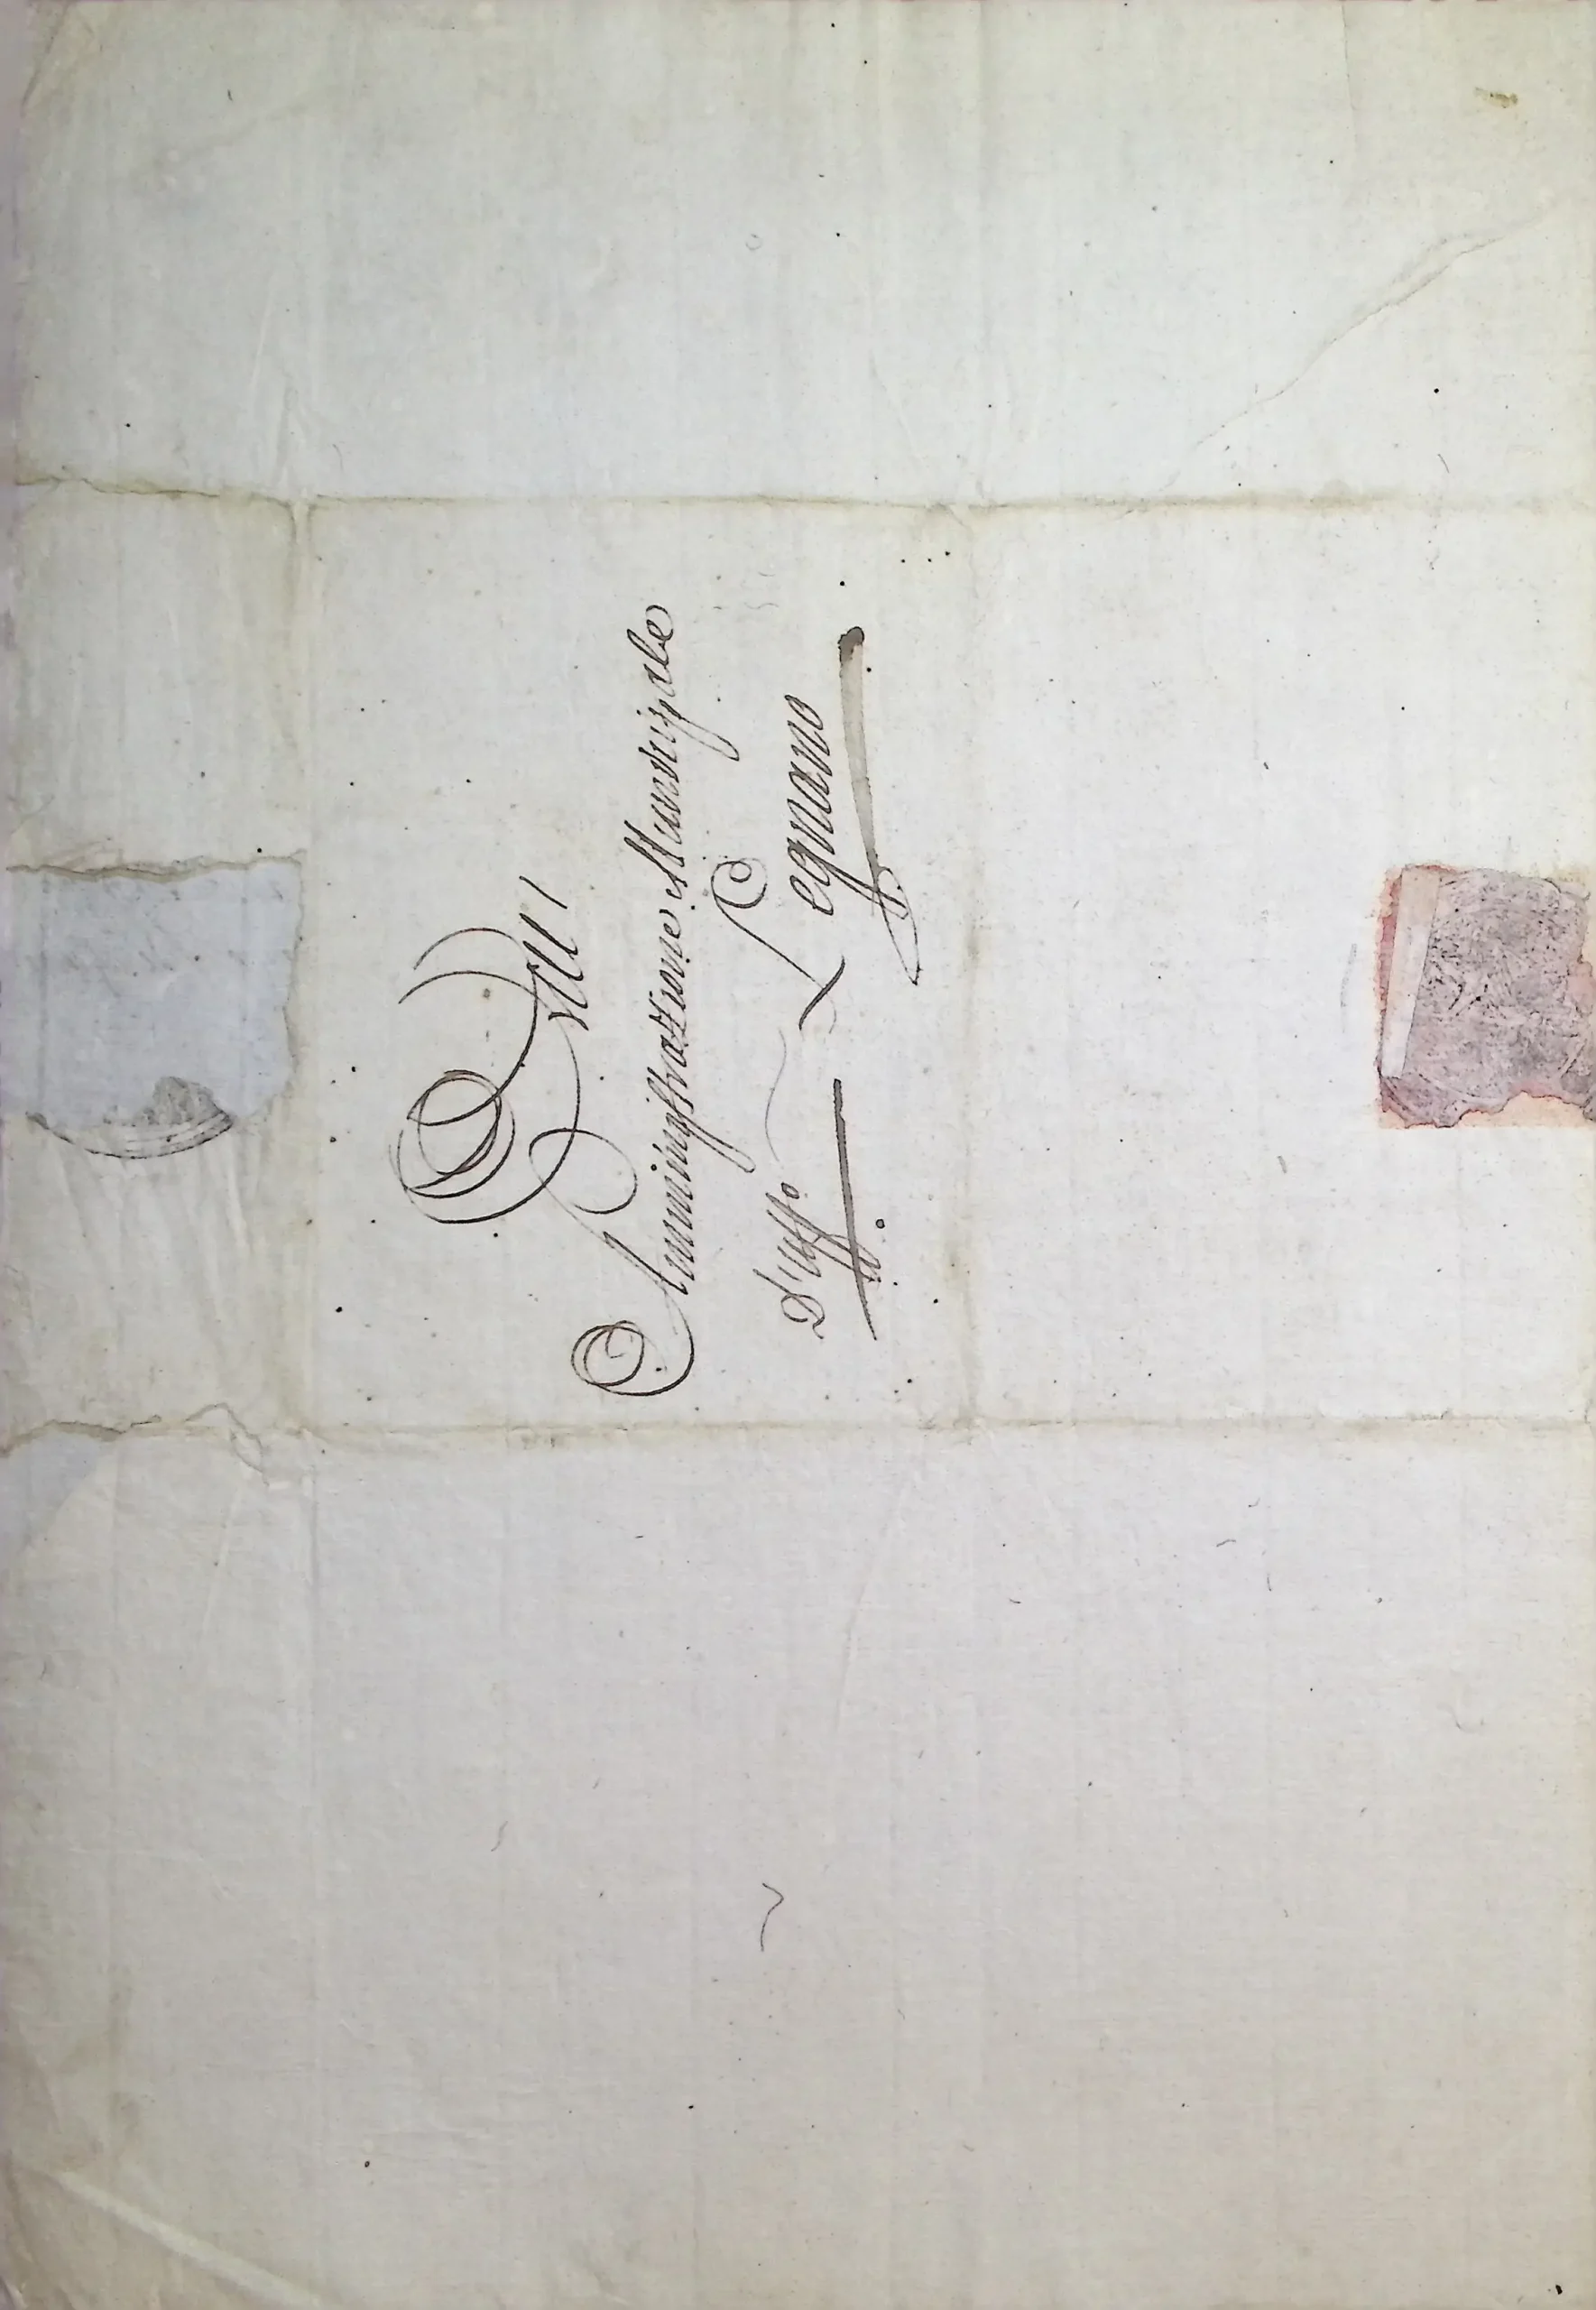 All'
Amministrazione Municipale
D'Uffo. Legnano